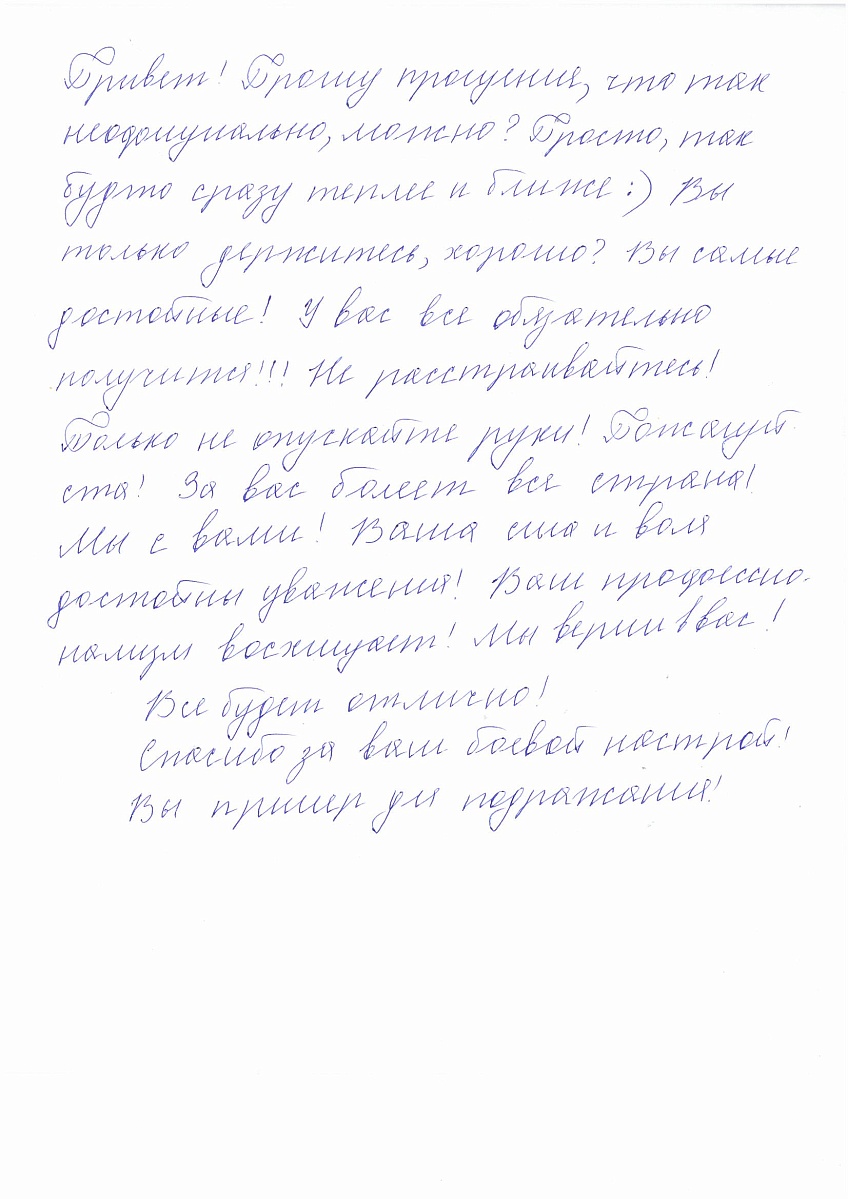 Привет! Прошу прощения, что так
неофициально, можно? Просто, так
будто сразу теплее и ближе :) Вы
только держитесь, хорошо? Вы самые
достойные! У вас все обязательно
получится!!! Не расстраивайтесь!
Только не опускайте руки! Пожалуй
ста! За вас болеет вся страна!
Мы с вами! Ваша сила и воля
достойны уважения! Ваш профессио-
нализм восхищает! Мы верим в вас!
Все будет отлично!
Спасибо за ваш боевой настрой!
Вы пример для подражания!